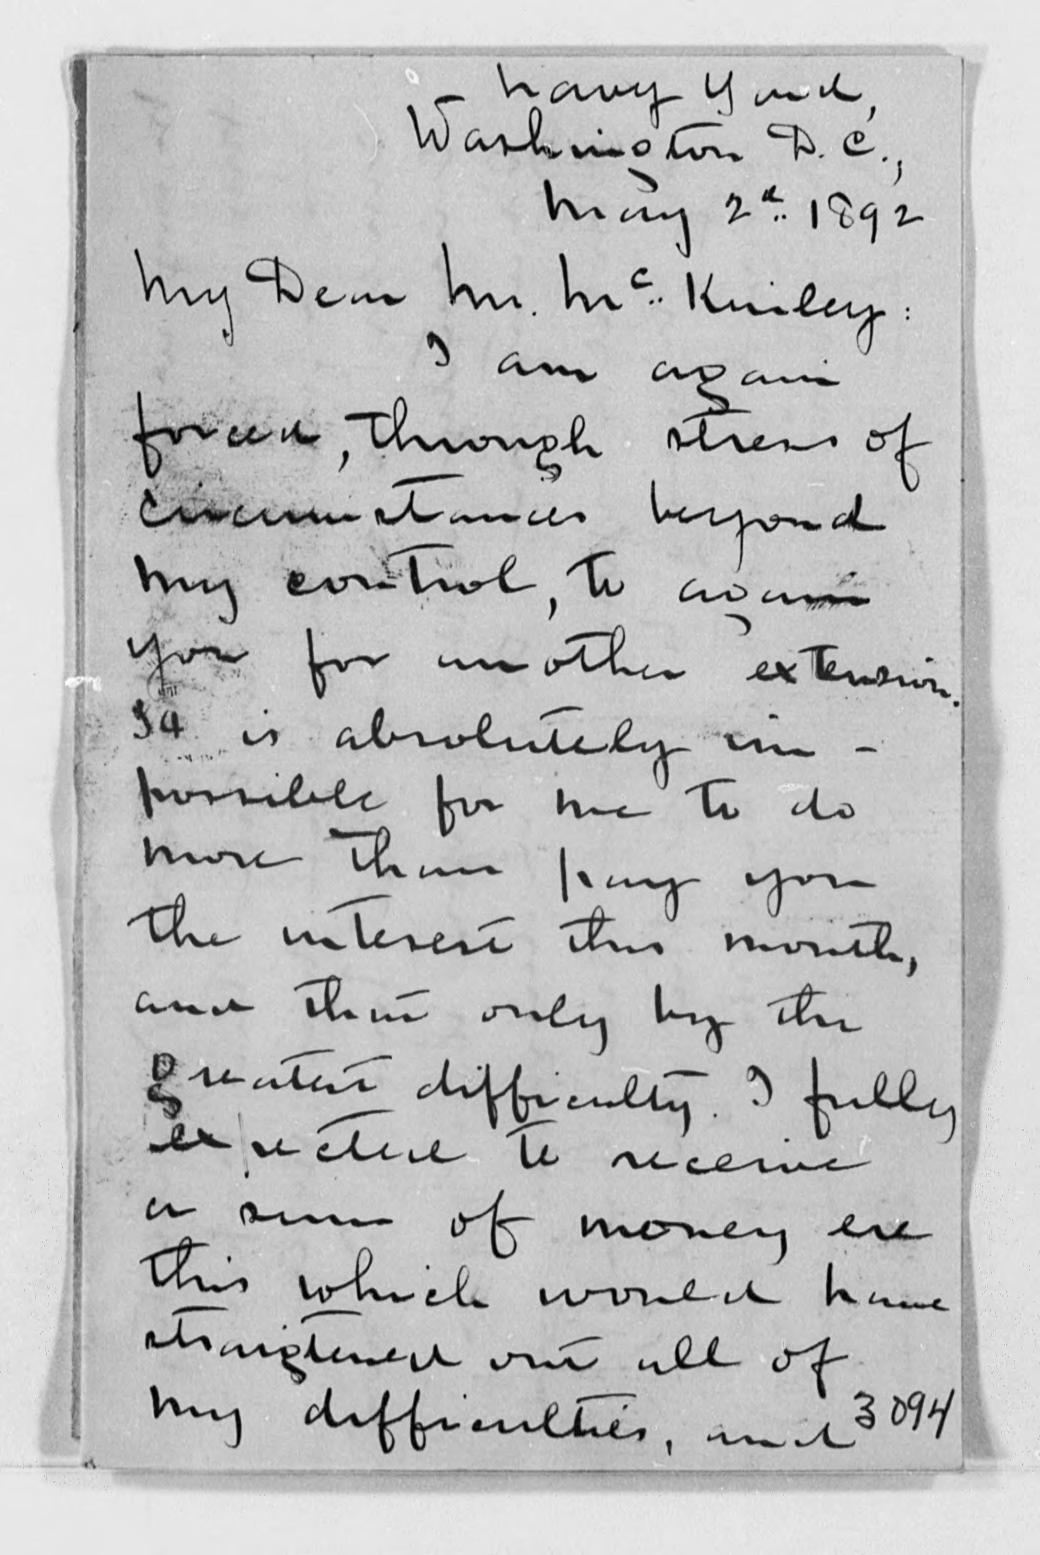 Navy Yard,
Washington D. C.,
May 2d. 1892
My Dear Mr. Mc. Kinley:
I am again
forced, through stress of
circumstances beyond
my control, to again
you for another extension.
It is absolutely im-
possible for me to do
more than pay you
the interest this month,
and that only by the
greatest difficulty. I fully
expected to receive
a sum of money ere
this which would have
straigtened out all of
my difficulties, and
3094